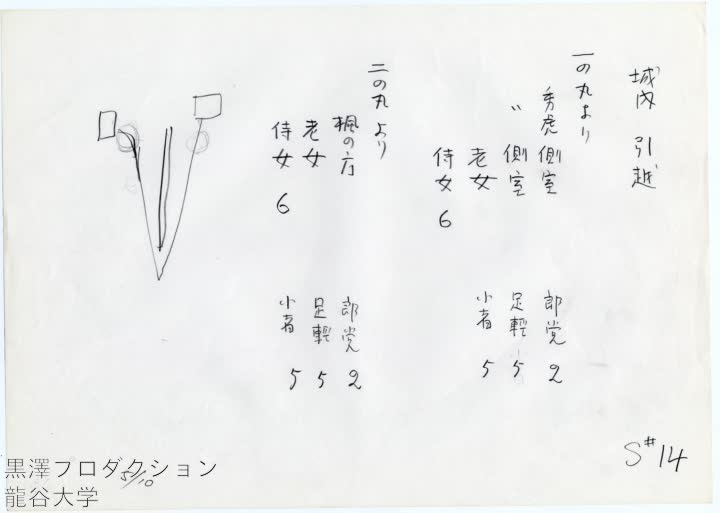 城内 引越
一の丸より
秀虎 側室
〃 側室
老女
侍女 6
郎党 2
足軽 5
小者 5
二の丸より
楓の方
老女
侍女 6
郎党 2
足軽 5
小者 5
S#14
5/10
黒澤プロダクション
龍谷大学